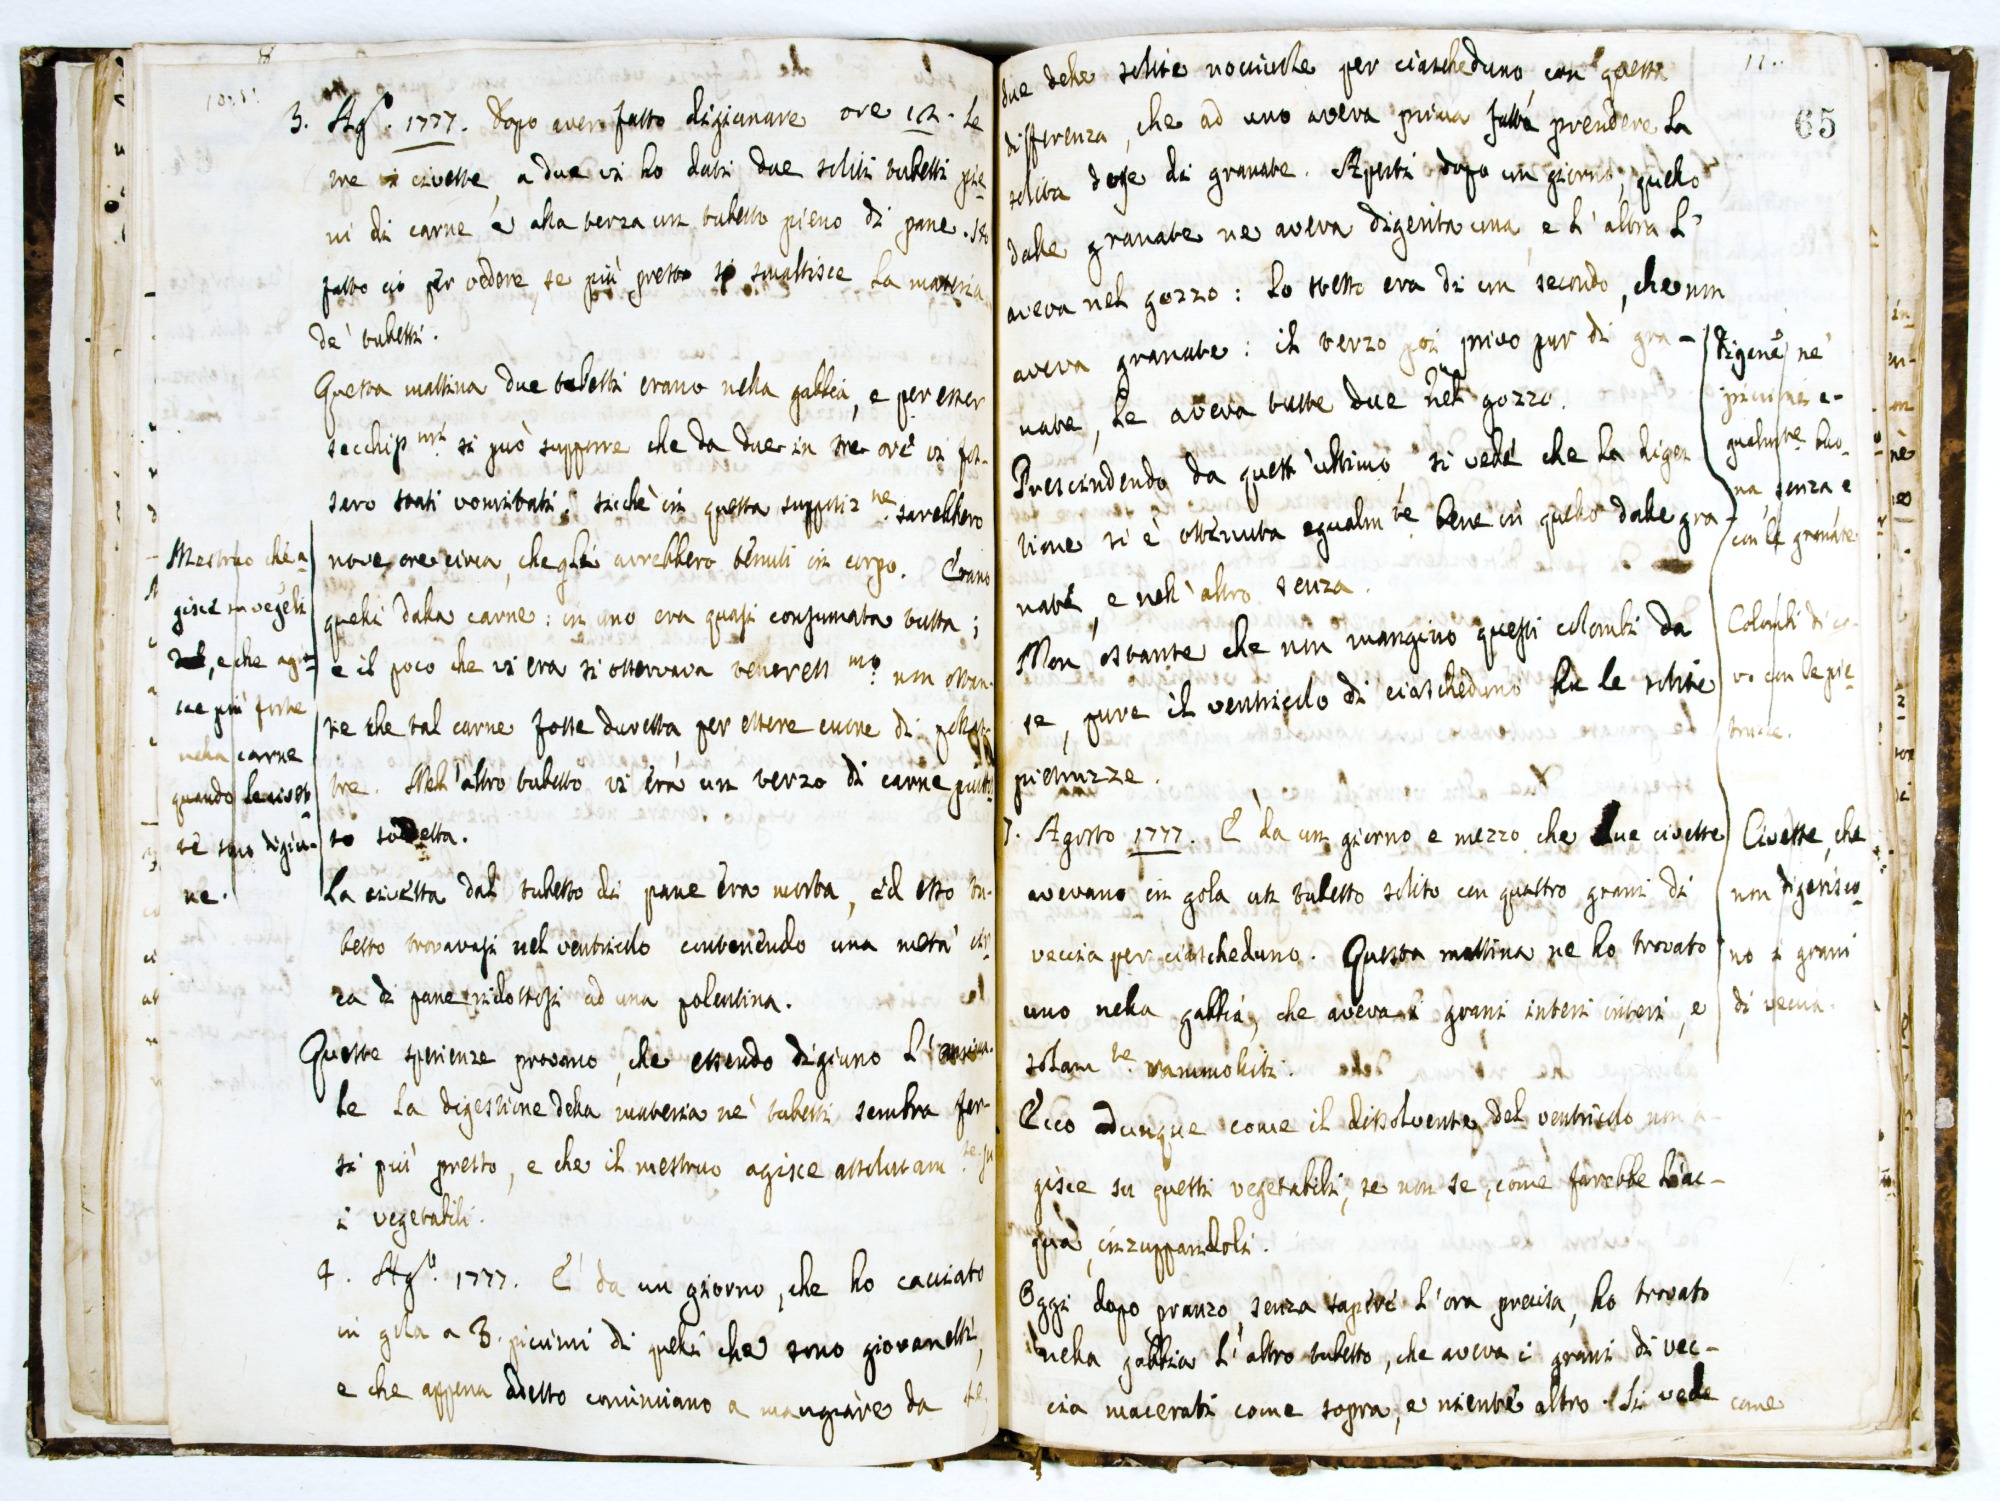 3. Ag.º 1777. Dopo aver fatto digiunare ore 12. le
tre civette, a due vi ho dati due soliti tubetti pie
ni di carne e alla terza un tubetto pieno di pane. Ho
fatto ciò per vedere, se più presto si smaltisce la materia
de' tubetti.
Questa mattina due tubetti erano nella gabbia, e per esser
secchi si può supporre che da due in tre ore vi fos-
sero stati vomitati: sicchè in questa suppoz.ne sarebbero
nove ore circa, che gli avrebbero tenuti in corpo. Erano
quelli dalla carne: in uno era quasi consumata tutta;
e il poco che vi era si osservava teneress.mo non ostan-
te che tal carne fosse duretta per essere cuore di pollas-
tre. Nell'altro tubetto vi era un terzo di carne piutto
to sodetta.
La civetta dal tubetto di pane era morta, ed esso tu-
betto trovavasi nel ventricolo contenendo una metà cir
ca di pane ridottosi ad una polentina.
Queste sperienze provano, che essendo digiuno l'anima-
le la digestione della materia ne' tubetti sembra far-
si più presto, e che il mestruo agisce assolutam.te su
i vegetabili.
4. Ag.º 1777. E' da un giorno, che ho cacciato
in gola a 3. piccioni di quelli che sono giovanetti,
e che appena adesso cominciano a mangiare da se,
Mestruo che a-
gisce in vegeta
bili, e che agi-
sce più forte
nella carne
quando le civet
te sono digiu-
ne.
65
due delle solite nocciuole per ciascheduno, con questa
differenza, che ad uno aveva prima fatta prendere la
solita dose di granate. Aperti dopo un giorno, quello
dalle granate ne aveva digerita una, e l'altra l'
aveva nel gozzo: lo stesso era di un secondo, che non
aveva granate: il terzo poi privo pur di gra-
nate, le aveva tutte due nel gozzo.
Prescindendo da quest'ultimo, si vede che la diges
tione si è ottenuta egualm.te bene in quello dalle gra-
nate, e nell'altro senza.
Non ostante che non mangino questi colombi da
se, pure il ventricolo di ciascheduno ha le solite
pietruzze.
7. Agosto 1777. E' da un giorno e mezzo che due civette
avevano in gola un tubetto solito con quattro grani di
veccia per ciascheduno. Questa mattina ne ho trovato
uno nella gabbia, che aveva i grani interi interi, e
solam.te rammolliti.
Ecco adunque come il dissolvente del ventricolo non a-
gisce su questi vegetabili, se non se, come farebbe l'ac-
qua, inzuppandoli.
Oggi dopo pranzo, senza sapere l'ora precisa, ho trovato
nella gabbia l'altro tubetto, che aveva i grani di vec-
cia macerati come sopra, e niente altro. Si vede
come
Digene ne'
piccioni e-
gualm.te buo-
na, senza e
con le granate
Colombi di co-
vo con le pie-
truzze.
Civette, che
non digerisco-
no i grani
di veccia.